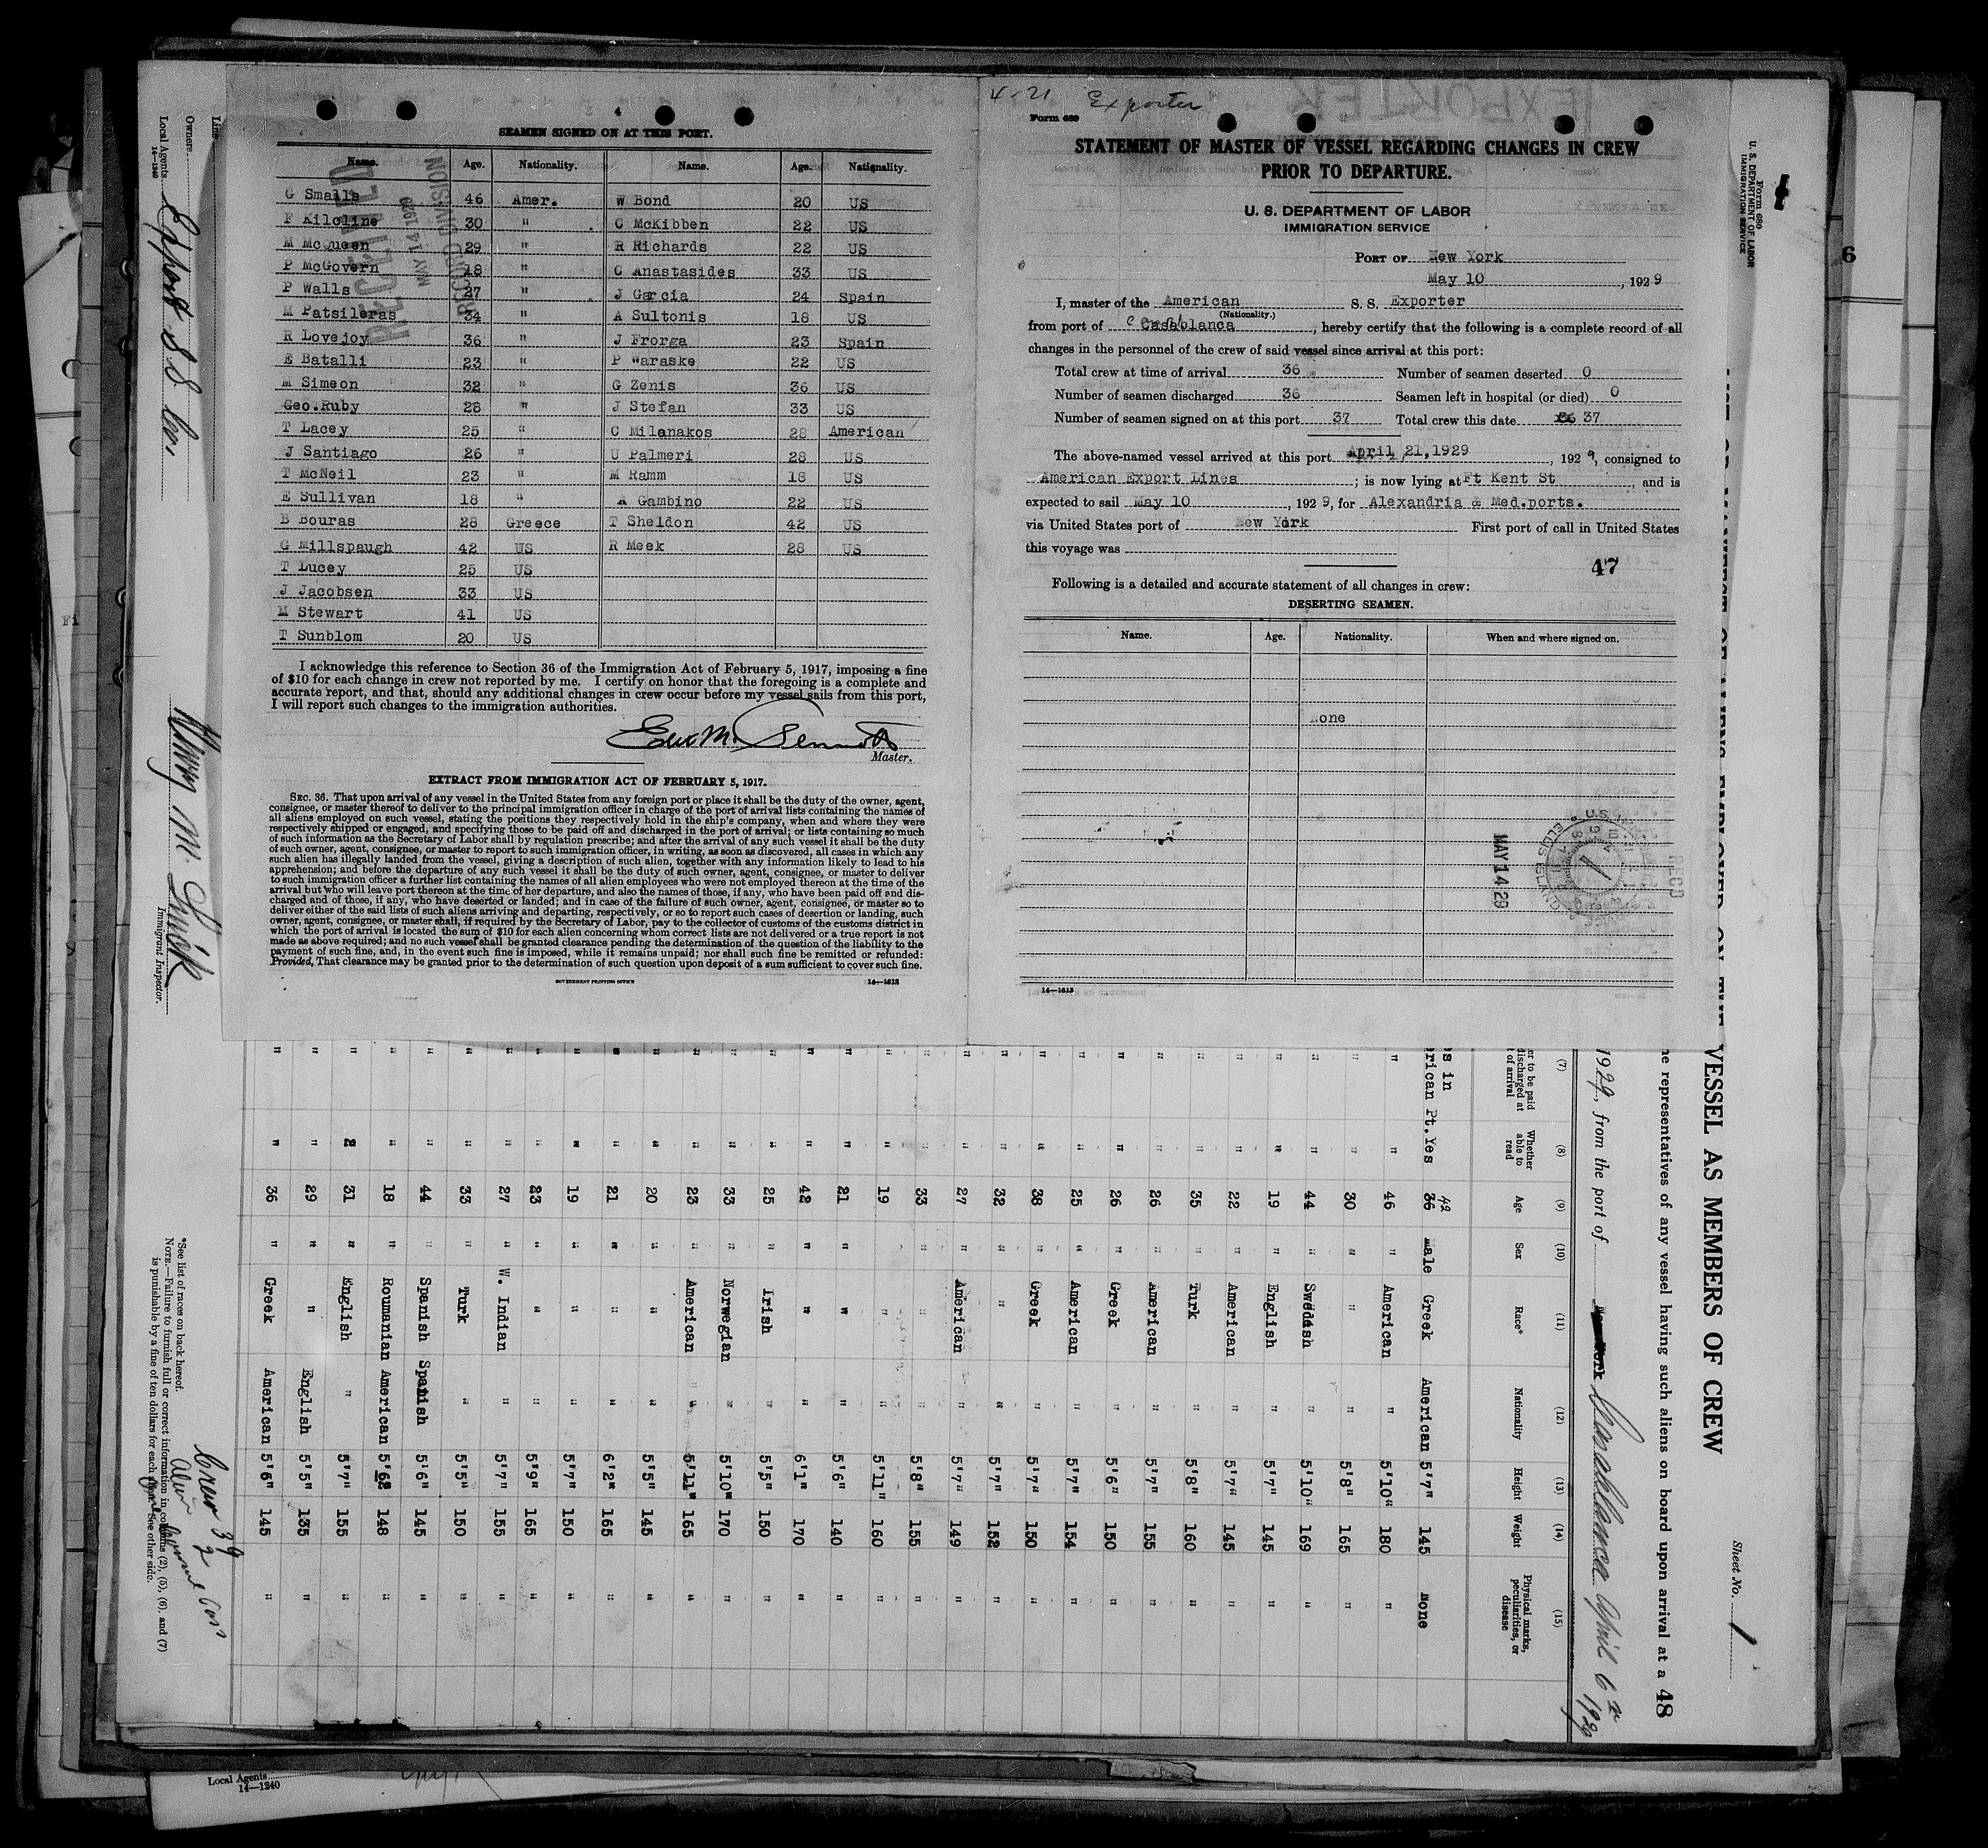 4
SEAMEN SIGNED ON AT THIS PORT.
Name. Age. Nationality. Name. Age. Nationality.
G Smalls 46 Amer. W Bond 20 US
F Kilcline 30 " C McKibben 22 US
M McQueen 29 " R Richards 22 US
P McGovern 18 " C Anastasides 33 US
P Walls 27 " J Garcia 24 Spain
M Patsileras 34 " A Sultonis 18 US
R Lovejoy 36 " J Frorga 23 Spain
E Batalli 23 " P Waraske 22 US
M Simeon 32 " G Zenis 36 US
Geo.Ruby 28 " J Stefan 33 US
T Lacey 25 " C Milanakos 28 American
J Santiago 26 " U Palmeri 28 US
T McNeil 23 " M Ramm 18 US
E Sullivan 18 " A Gambino 22 US
B Bouras 28 Greece T Sheldon 42 US
G Millspaugh 42 US R Meek 28 US
T Lucey 25 US
J Jacobsen 33 US
M Stewart 41 US
T Sunblom 20 US
RECEIVED
MAY 14 1929
RECORD DIVISION
I acknowledge this reference to Section 36 of the Immigration Act of February 5, 1917, imposing a fine
of $10 for each change in crew not reported by me. I certify on honor that the foregoing is a complete and
accurate report, and that, should any additional changes in crew occur before my vessel sails from this port,
I will report such changes to the immigration authorities.
Master.
EXTRACT FROM IMMIGRATION ACT OF FEBRUARY 5, 1917.
SEC. 36. That upon arrival of any vessel in the United States from any foreign port or place it shall be the duty of the owner, agent,
consignee, or master thereof to deliver to the principal immigration officer in charge of the port of arrival lists containing the names of
all aliens employed on such vessel, stating the positions they respectively hold in the ship's company, when and where they were
respectively shipped or engaged, and specifying those to be paid off and discharged in the port of arrival; or lists containing so much
of such information as the Secretary of Labor shall by regulation prescribe; and after the arrival of any such vessel it shall be the duty
of such owner, agent, consignee, or master to report to such immigration officer, in writing, as soon as discovered, all cases in which any
such alien has illegally landed from the vessel, giving a description of such alien, together with any information likely to lead to his
apprehension; and before the departure of any such vessel it shall be the duty of such owner, agent, consignee, or master to deliver
to such immigration officer a further list containing the names of all alien employees who were not employed thereon at the time of the
arrival but who will leave port thereon at the time of her departure, and also the names of those, if any, who have been paid off and dis-
charged and of those, if any, who have deserted or landed; and in case of the failure of such owner, agent, consignee, or master so to
deliver either of the said lists of such aliens arriving and departing, respectively, or so to report such cases of desertion or landing, such
owner, agent, consignee, or master shall, if required by the Secretary of Labor, pay to the collector of customs of the customs district in
which the port of arrival is located the sum of $10 for each alien concerning whom correct lists are not delivered or a true report is not
made as above required; and no such vessel shall be granted clearance pending the determination of the question of the liability to the
payment of such fine, and, in the event such fine is imposed, while it remains unpaid; nor shall such fine be remitted or refunded:
Provided, That clearance may be granted prior to the determination of such question upon deposit of a sum sufficient to cover such fine.
GOVERNMENT PRINTING OFFICE 14—1613
4-21 Exporter
Form 689
STATEMENT OF MASTER OF VESSEL REGARDING CHANGES IN CREW
PRIOR TO DEPARTURE.
U. S. DEPARTMENT OF LABOR
IMMIGRATION SERVICE
PORT OF New York
May 10, 1929
I, master of the American S. S. Exporter
(Nationality.)
from port of Casablanca, hereby certify that the following is a complete record of all
changes in the personnel of the crew of said vessel since arrival at this port:
Total crew at time of arrival 36 Number of seamen deserted 0
Number of seamen discharged 36 Seamen left in hospital (or died) 0
Number of seamen signed on at this port 37 Total crew this date 37
The above-named vessel arrived at this port April 21,1929, 1929, consigned to
American Export Lines; is now lying at Ft Kent St, and is
expected to sail May 10, 1929, for Alexandria & Med.ports.
via United States port of New York First port of call in United States
this voyage was
47
Following is a detailed and accurate statement of all changes in crew:
DESERTING SEAMEN.
Name. Age. Nationality. When and where signed on.
None
MAY 14 29
14—1613
Form 680
U. S. DEPARTMENT OF LABOR
IMMIGRATION SERVICE
1
6
Sheet No. 1
VESSEL AS MEMBERS OF CREW
he representatives of any vessel having such aliens on board upon arrival at a 48
1929, from the port of Casablanca April 6th 1929
(7) (8) (9) (10) (11) (12) (13) (14) (15)
er to be paid discharged at t of arrival
Whether able to read
Age
Sex
Race*
Nationality
Height
Weight
Physical marks, peculiarities, or disease
s in
erican Pt. Yes 36 42 Male Greek American 5'7" 145 None
" " 46 " American " 5'10" 180 "
" " 30 " " " 5'8" 165 "
" " 44 " Swedish " 5'10" 169 "
" " 19 " English " 5'7" 145 "
" " 22 " American " 5'7" 145 "
" " 35 " Turk " 5'8" 160 "
" " 26 " American " 5'7" 155 "
" " 26 " Greek " 5'6" 150 "
" " 25 " American " 5'7" 154 "
" " 38 " Greek " 5'7" 150 "
" " 32 " " " 5'7" 152 "
" " 27 " American " 5'7" 149 "
" " 33 " " " 5'8" 155 "
" " 19 " " " 5'11" 160 "
" " 21 " " " 5'6" 140 "
" " 42 " " " 6'1" 170 "
" " 25 " Irish " 5'5" 150 "
" " 33 " Norwegian " 5'10" 170 "
" " 23 " American " 5'11" 165 "
" " 20 " " " 5'5" 145 "
" " 21 " " " 6'2" 165 "
" " 19 " " " 5'7" 150 "
" " 23 " " " 5'9" 165 "
" " 27 " W. Indian " 5'7" 155 "
" " 33 " Turk " 5'5" 150 "
" " 44 " Spanish Spanish 5'6" 145 "
" " 18 " Roumanian American 5'6 148 "
" " 31 " English " 5'7" 155 "
" " 29 " " English 5'5" 135 "
" " 36 " Greek American 5'6" 145 "
Line
Owners
Local Agents Export S S Co.
14—1240
Immigrant Inspector.
*See list of races on back hereof.
NOTE.—Failure to furnish full or correct information in columns (2), (5), (6), and (7)
is punishable by a fine of ten dollars for each alien. See other side.
Crew 39
Local Agents
14—1240